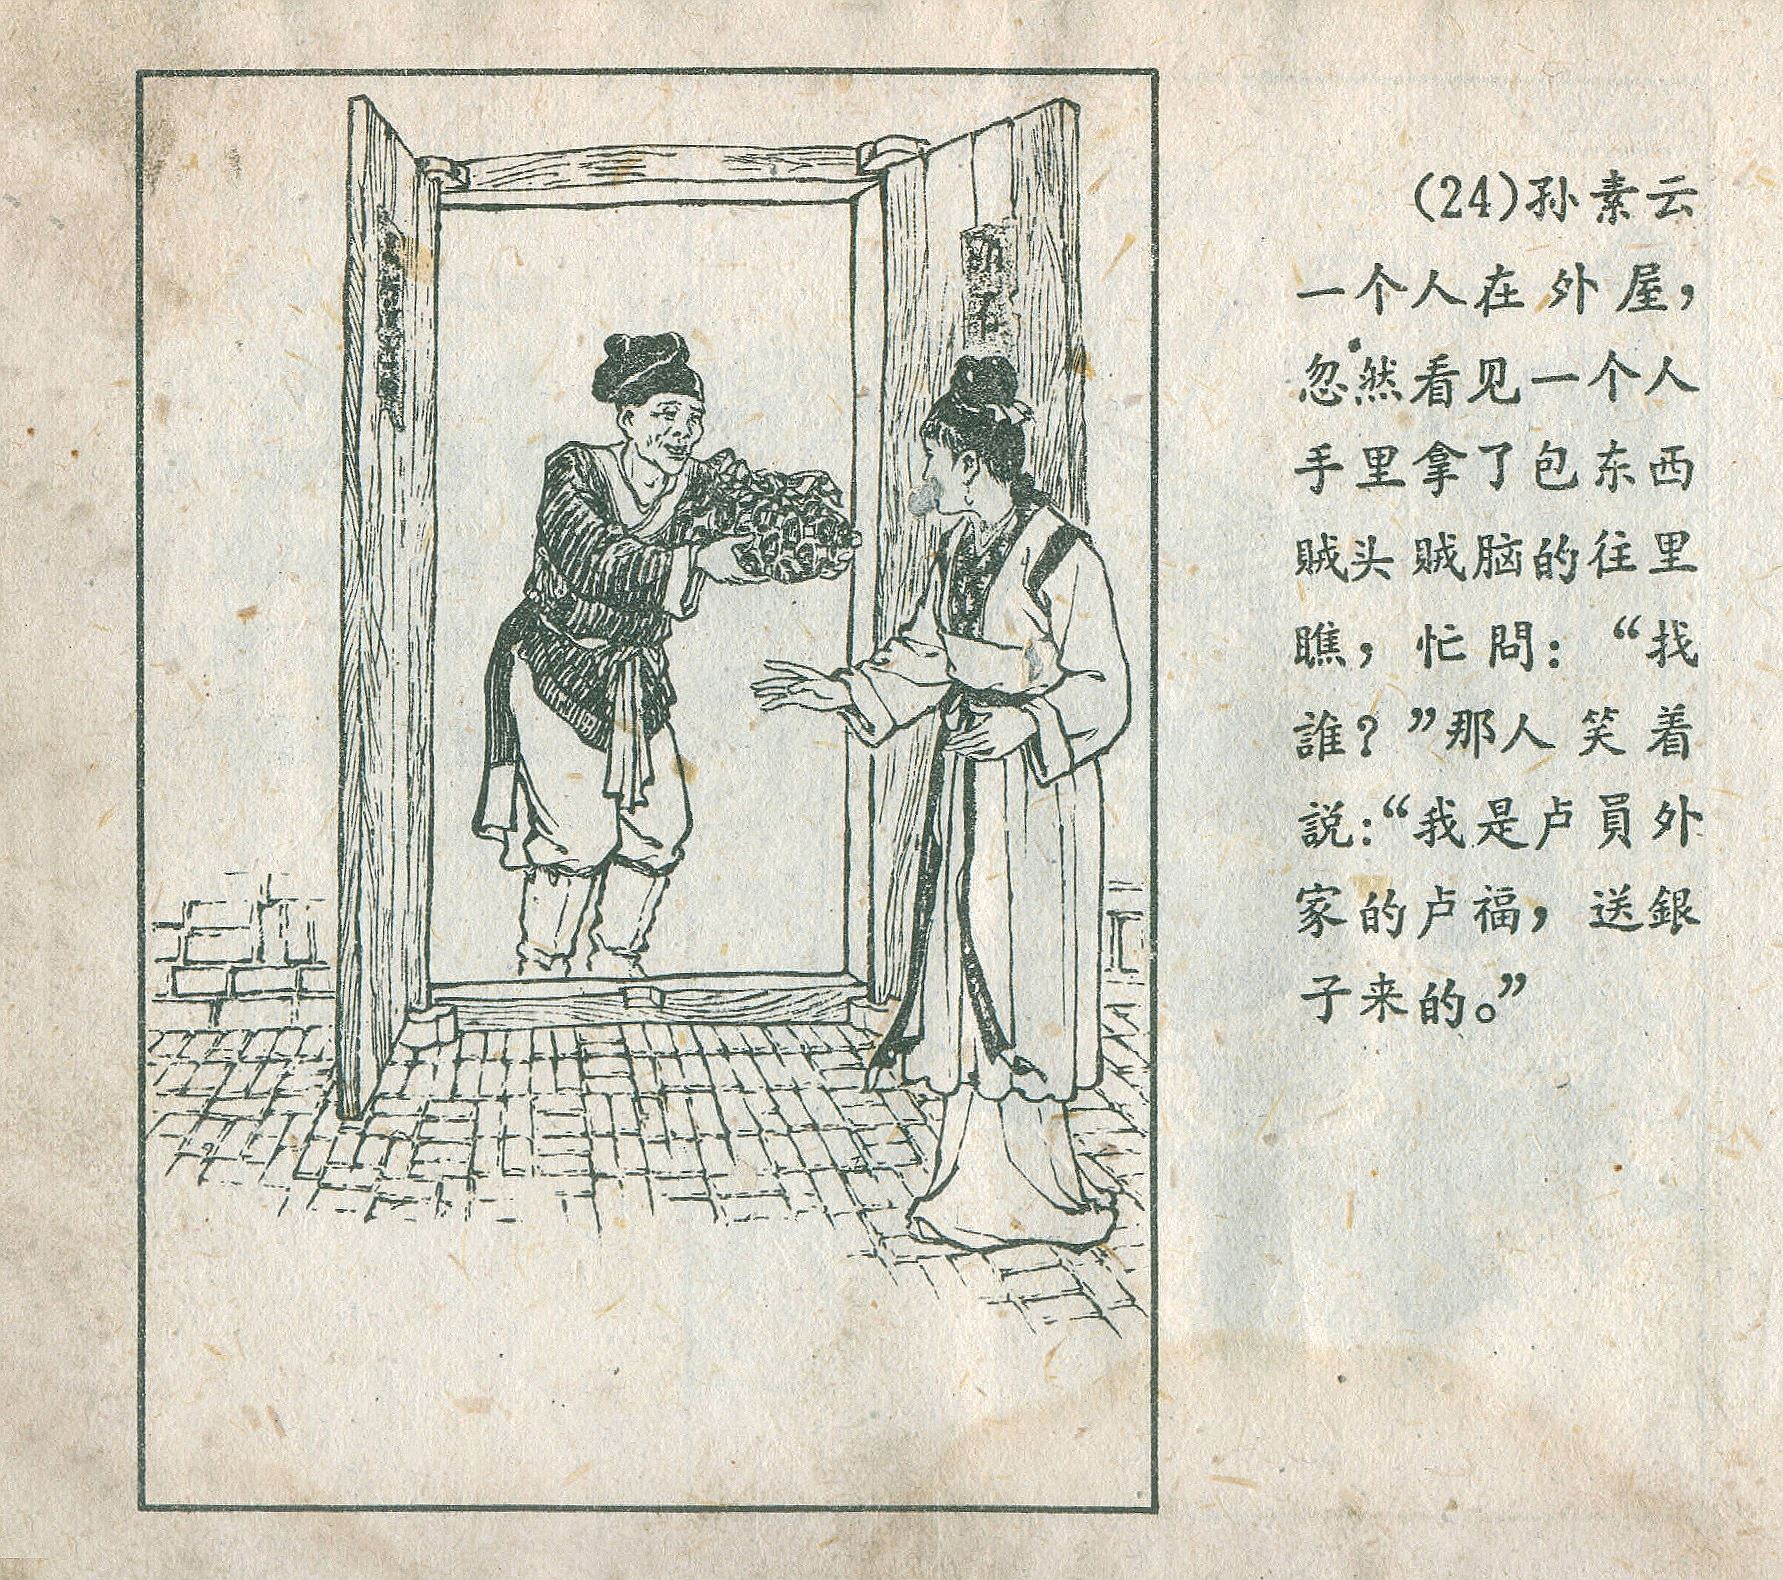 (24)孙素云
一个人在外屋，
忽然看见一个人
手里拿了包东西
贼头贼脑的往里
瞧，忙問：“找
誰？”那人笑着
説：“我是卢員外
家的卢福，送銀
子来的。”